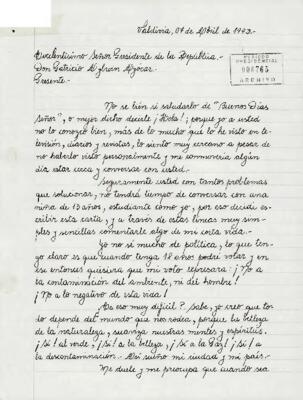 Valdivia, 04 de Abril de 1992.
Excelentísimo Señor Presidente de la República
Don Patricio Aylwin Azocar
Presente.
PERIODO
PRESIDENCIAL
ARCHIVO
No se bien si saludarlo de "Buenos Días
Señor", o mejor dicho decirle ¡Hola!; porque yo a usted
no lo conozco bien, más de lo mucho que lo he visto en te-
levisión, diario y revistas, lo siento muy cercano a pesar de
no haberlo visto personalmente y me conmovería algún
día estar cerca y conversar con usted.
Seguramente usted con tantos problemas
que solucionar, no tendrá tiempo de conversar con una
niña de 13 años, estudiante como yo, por eso decidí es-
cribir esta carta, y a través de estas líneas muy sim-
ples y sencillas comentarle algo de mi corta vida.
Yo no sí mucho de política, lo que ten-
go claro es que cuando tenga 18 años podré votar y en
ese entonces quisiera que mi voto represara: ¡No a
la contaminación del ambiente, ni del hombre!
¡No a lo negativo de esta vida!
Es eso muy difícil? Sabe, yo creo que to-
do depende del mundo que nos rodea, porque la belleza
de la naturaleza, suaviza nuestras mentes y espíritus.
¡Si! al verde, ¡Si! a la belleza, ¡Si a la Paz! ¡Si! a
la descontaminación. Así sueño mi ciudad y mi país.
Me duele y me preocupa que cuando sea